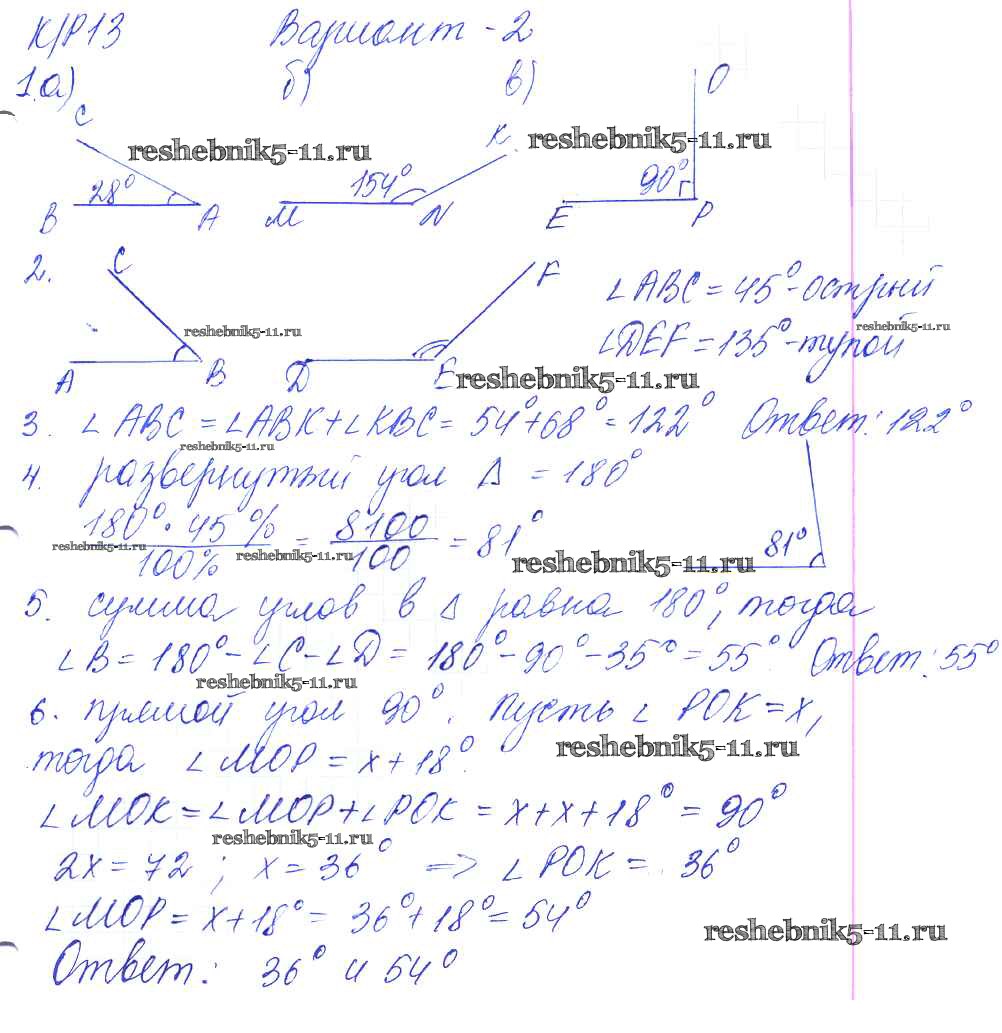 К/Р13 Вариант - 2
1.а) б) в)
C K O
reshebnik5-11.ru reshebnik5-11.ru
28° 154° 90°
B A M N E P
2. C F
∠ABC = 45° - острый
reshebnik5-11.ru reshebnik5-11.ru
∠DEF = 135° - тупой
A B D E reshebnik5-11.ru
3. ∠ABC = ∠ABK + ∠KBC = 54° + 68° = 122° Ответ: 122°
reshebnik5-11.ru
4. развернутый угол Δ = 180°
180° · 45 % / 100% = 8100 / 100 = 81° 81°
reshebnik5-11.ru reshebnik5-11.ru reshebnik5-11.ru
5. сумма углов в Δ равна 180°, тогда
∠B = 180° - ∠C - ∠D = 180° - 90° - 35° = 55°. Ответ: 55°
reshebnik5-11.ru
6. прямой угол 90°. Пусть ∠POK = x,
reshebnik5-11.ru
тогда ∠MOP = x + 18°.
∠MOK = ∠MOP + ∠POK = x + x + 18° = 90°
reshebnik5-11.ru
2x = 72 ; x = 36° => ∠POK = 36°
∠MOP = x + 18° = 36° + 18° = 54°
reshebnik5-11.ru
Ответ: 36° и 54°